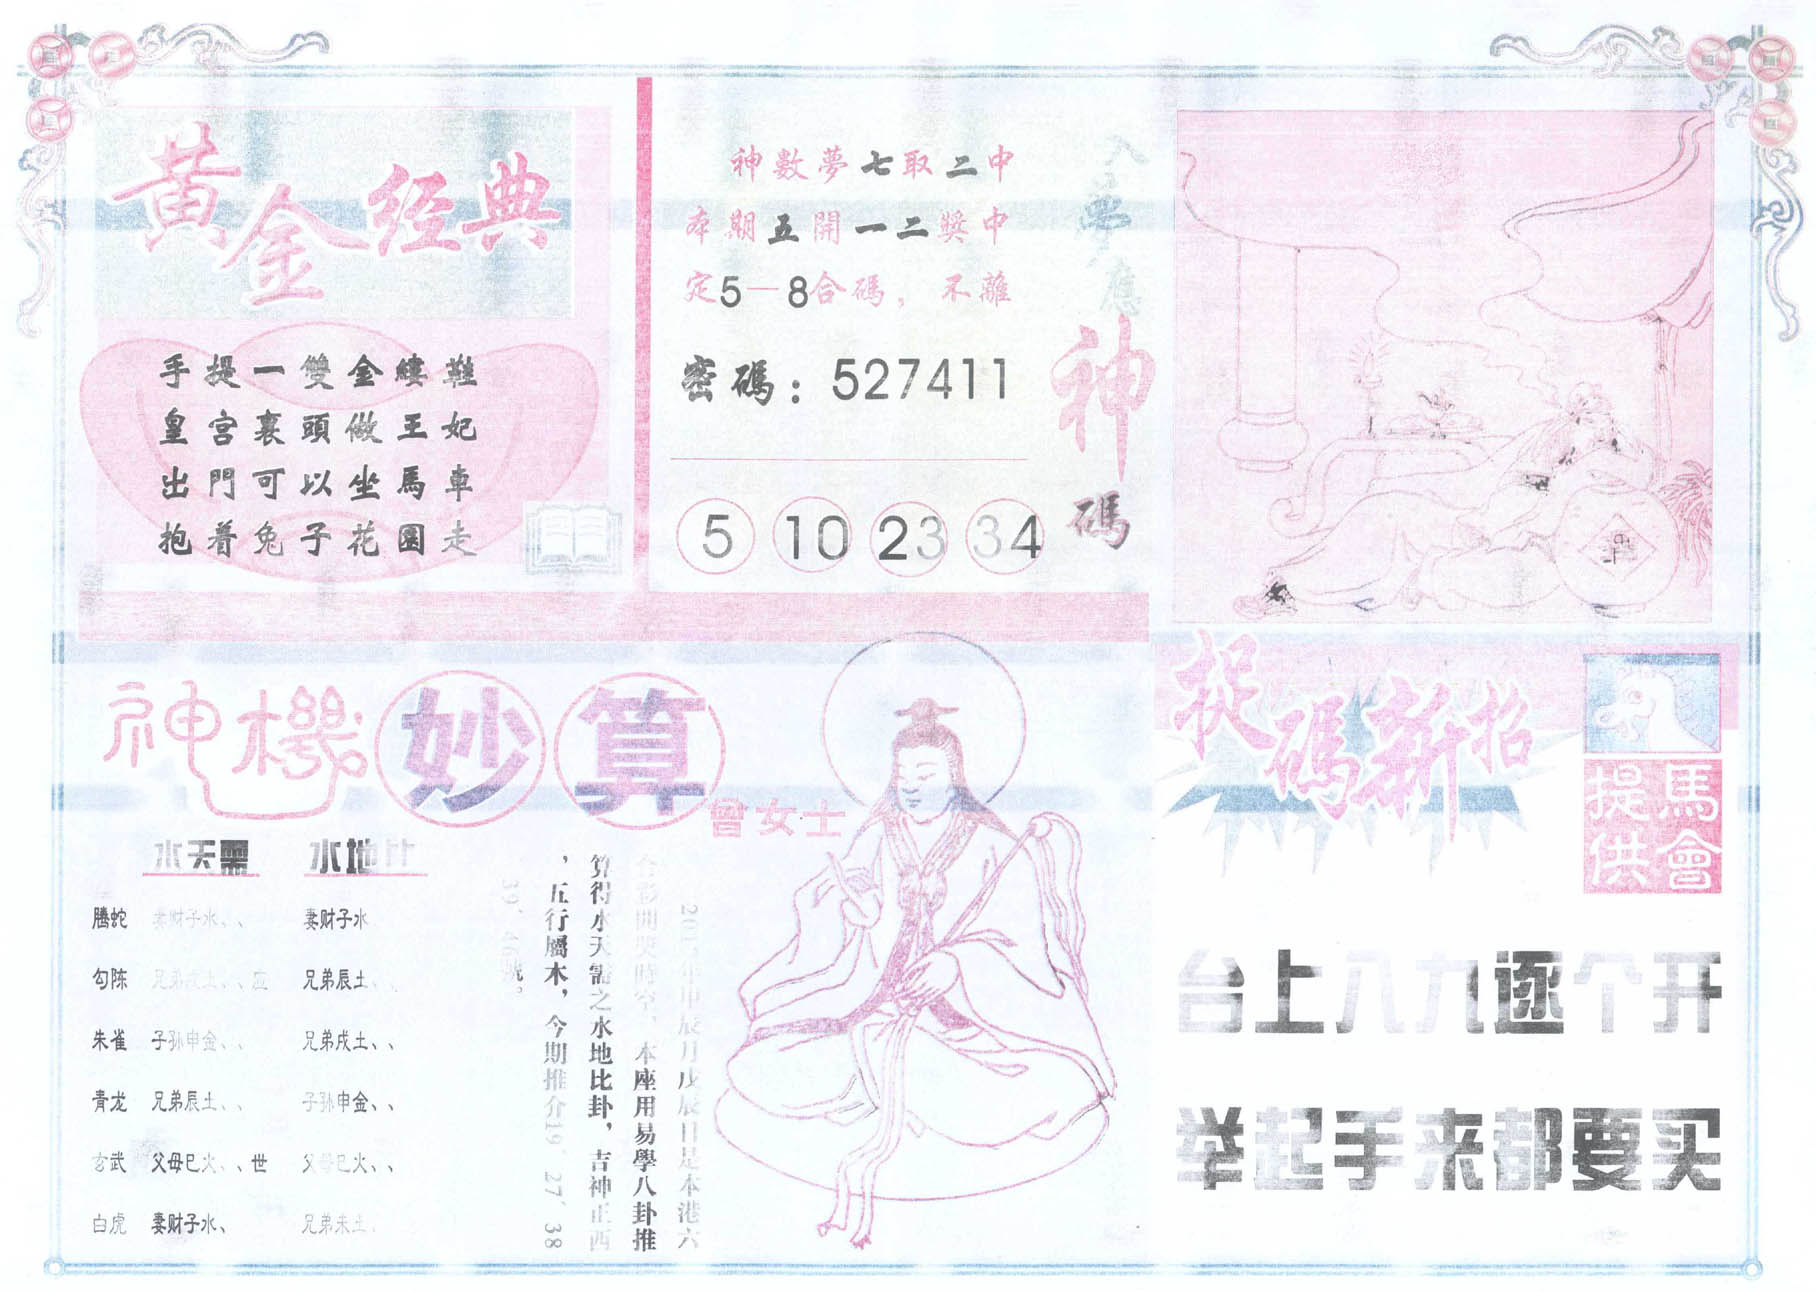 黄金经典
手提一雙金縷鞋
皇宫裏頭做王妃
出門可以坐馬車
抱着兔子花園走
神數夢七取二中
本期五開一二獎中
定5—8合碼，不離
密碼：527411
5 10 23 34
入夢應神碼
神機妙算
曾女士
水天需 水地比
腾蛇 妻财子水、、 妻财子水
勾陈 兄弟戌土、、应 兄弟辰土、
朱雀 子孙申金、、 兄弟戌土、、
青龙 兄弟辰土、、 子孙申金、、
玄武 父母巳火、、世 父母巳火、、
白虎 妻财子水、 兄弟未土、
年甲辰月戊辰日是本港六
合彩開獎時空，本座用易學八卦推
算得水天需之水地比卦，吉神正西
，五行屬木，今期推介19、27、38
39、46號。
捉碼新招
馬會提供
台上八九逐个开
举起手来都要买